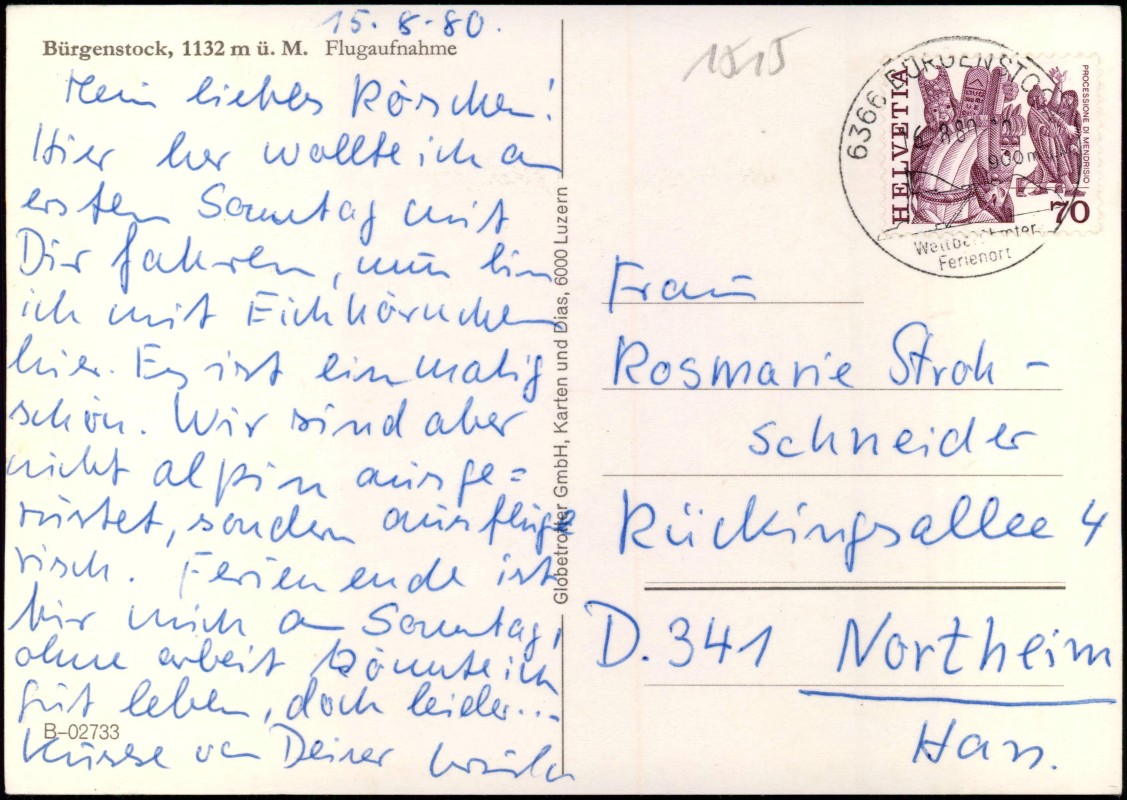 15.8.80.
Bürgenstock, 1132 m ü. M. Flugaufnahme
Mein liebes Röschen!
Hier her wollte ich am
ersten Sonntag mit
Dir fahren, nun bin
ich mit Eichhörnchen
hier. Es ist einmalig
schön. Wir sind aber
nicht alpin ausge=
rüstet, sondern ausflüge
risch. Ferienende ist
für mich am Sonntag,
ohne arbeit könnte ich
gut leben, doch leider...
B-02733
Küsse von Deiner
Globetrotter GmbH, Karten und Dias, 6000 Luzern
1515
6366 BÜRGENSTOCK
8.80
900 m
Weltberühmter
Ferienort
HELVETIA
PROCESSIONE DI MENDRISIO
70
Frau
Rosmarie Stroh-
schneider
Rückingsallee 4
D.341 Northeim
Han.